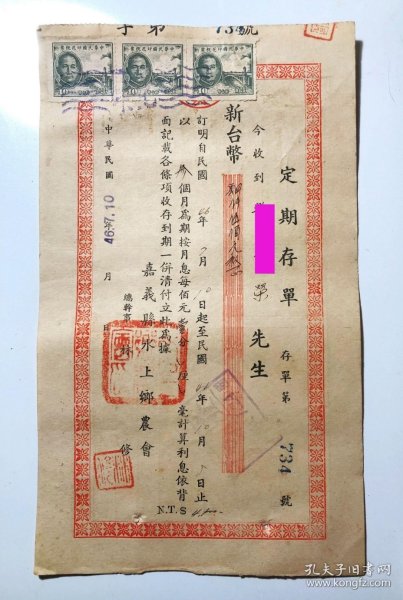 字第734號
定期存單
存單第 734 號
今收到
榮 先生
新台幣
訂明自民國 46年7月10日起至民國46年10月 日止
以 個月為期按月息每佰元壹分 厘 毫計算利息依背
面記載各條項收存到期一併清付立此為據
嘉義縣水上鄉農會
總幹事林 修
中華民國 年 月 日
46.7.10
N.T.$
中華民國印花稅票
中華民國印花稅票
中華民國印花稅票
孔夫子旧书网
www.kongfz.com